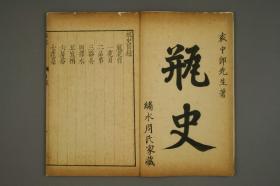 袁中郎先生著
瓶史
繡水周氏家藏
瓶史目錄
一花目
二品第
三器具
四擇水
五宜稱
六屏俗
七花祟